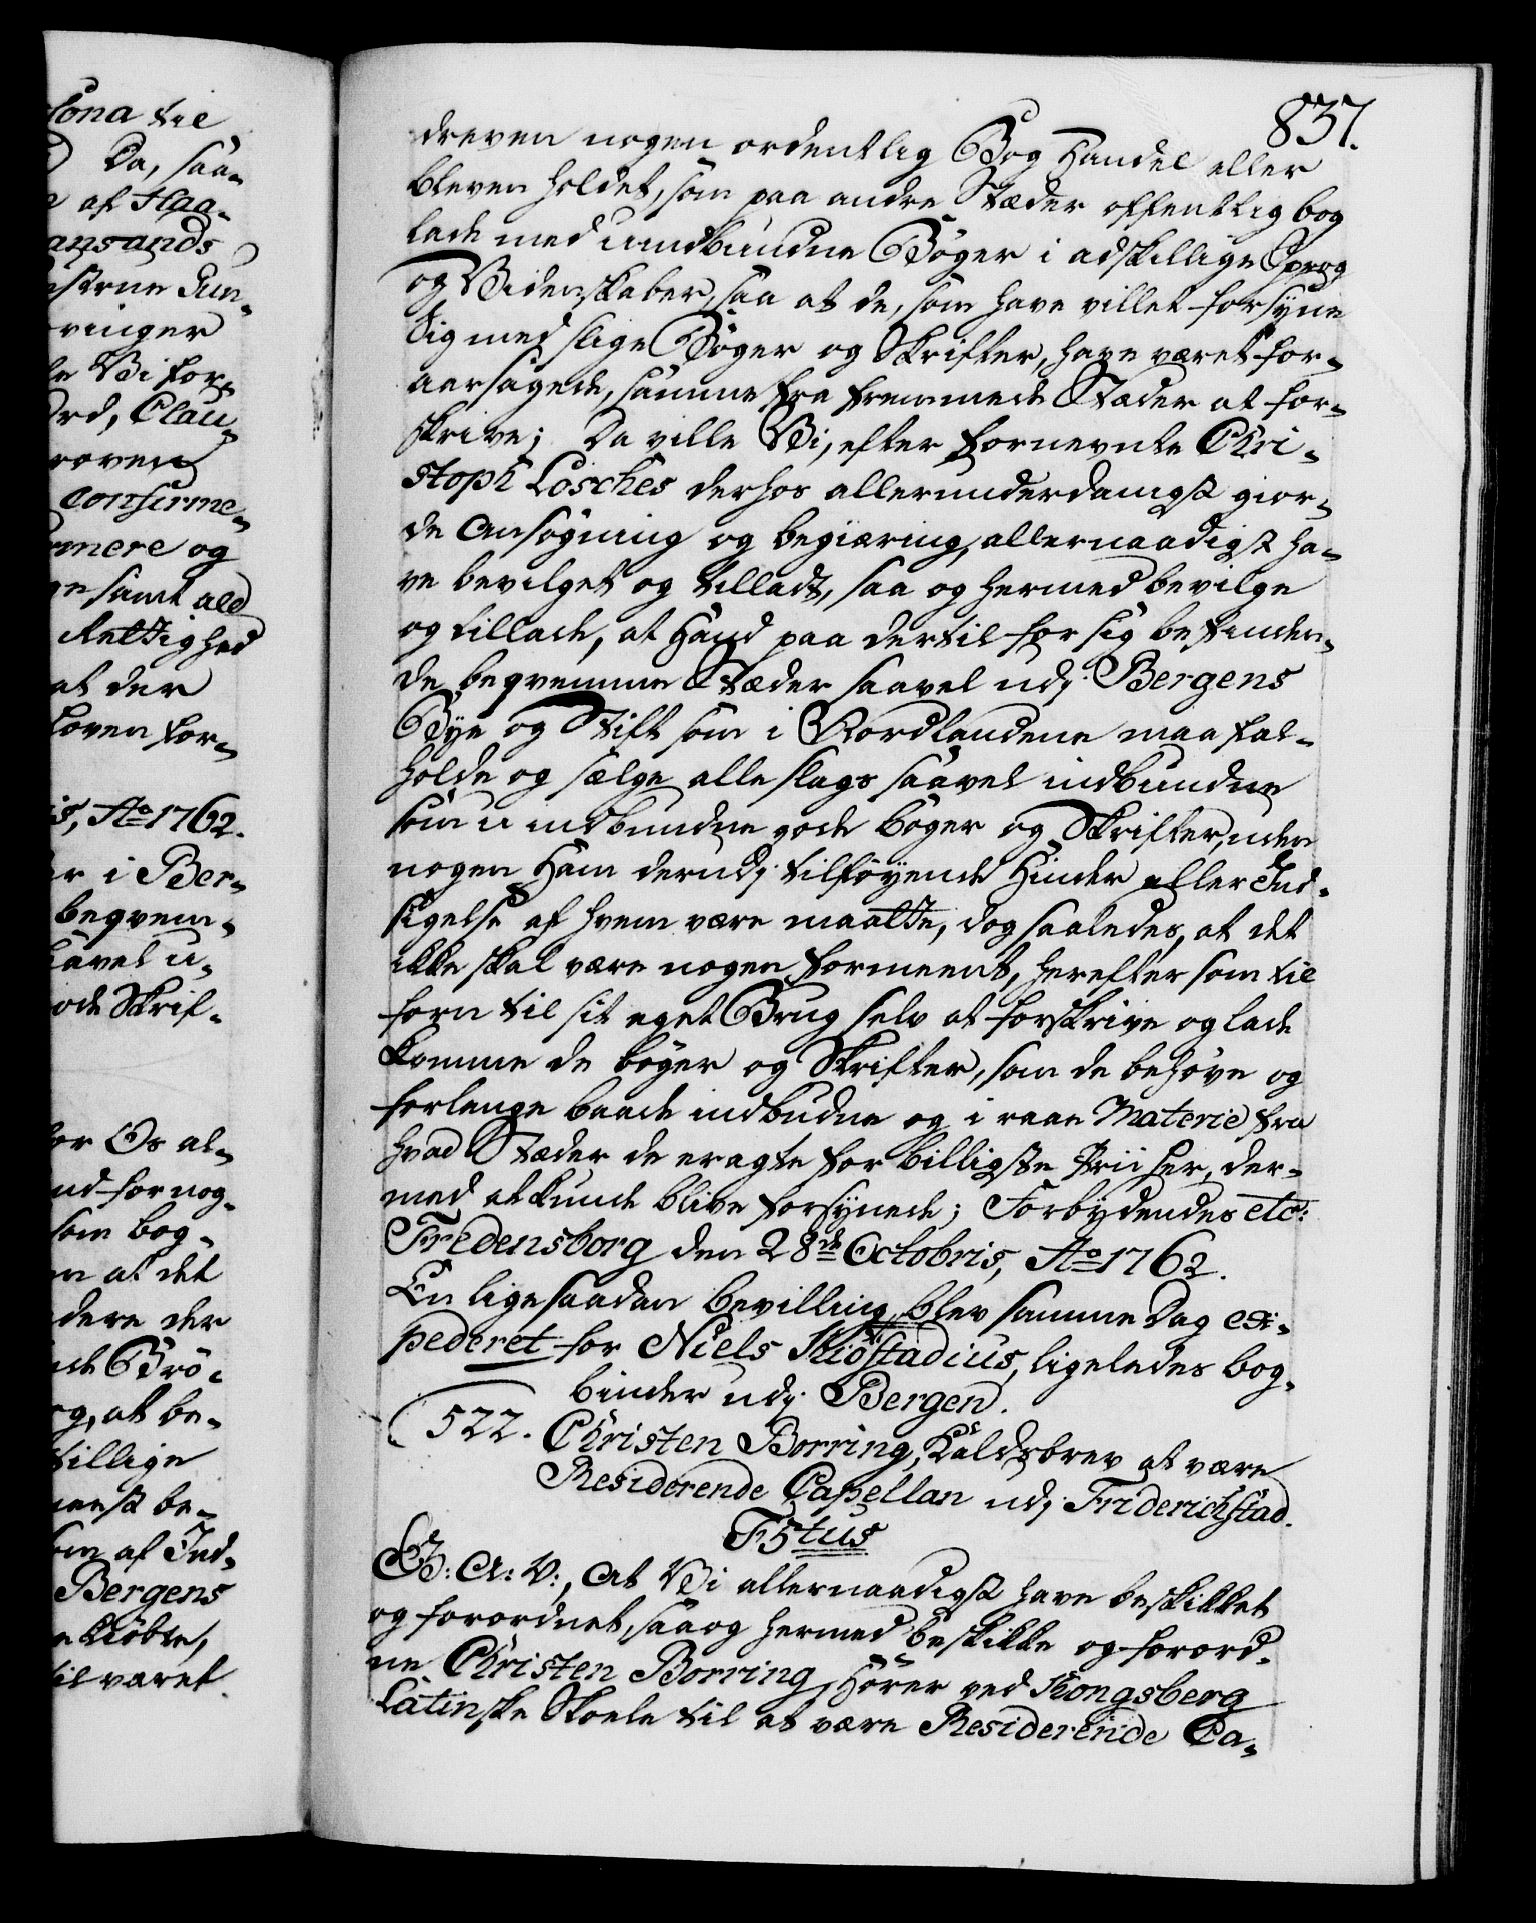 cona til
Da, saa-
af Haa-
ansands
Vi for-
ord, Clau-
roven
confirme-
mere og
samt ald
Rettighed
at der
loven for-
is, Ao 1762.
er i Ber-
beqvem-
saavel u-
ode Skrif-
for Os al-
ud for nog-
som bog-
en at det
dere der
og, at be-
tillige
meenst be-
af Ind-
Bergens
til været
837.
dreven nogen ordentlig Bog Handel eller
bleven holdet, som paa andre Stæder offentlig bog
lade med uindbundne Bøger i adskillige Sprog
og Videnskaber, saa at de, som have villet forsyne
sig med slige Bøger og Skrifter, have været for-
aarsagede, samme fra fremmede Stæder at for-
skrive; Da ville Vi, efter fornevnte Chri-
stoph Losches derhos allerunderdanigst gior-
de Ansøgning og begiæring, allernaadigst ha-
ve bevilget og tilladt, saa og hermed bevilge
og tillade, at Hand paa dertil for sig befinden-
de beqvemme Stæder saavel udj Bergens
Bye og Stift som i Nordlandene maa fal-
holde og sælge alle slags saavel indbundne
som uindbundne gode bøger og Skrifter, uden
nogen Ham derudj tilføyende Hinder eller Ind-
sigelse af hvem være maatte, dog saaledes, at det
ikke skal være nogen formeent, herefter som til
forn til sit eget Brug selv at forskrive og lade
komme de bøger og Skrifter, som de behøve og
forlange baade indbudne og i raae Materie fra
hvad Stæder de eragte for billigste Priiser, der-
med at kunde blive forsynede; Forbydendes etc:
Fredensborg den 28de Octobris, Ao 1762.
En ligesaadan bevilling blev samme Dag ex-
pederet for Niels Kiöstadius, ligeledes bog-
binder udj Bergen.
522. Christen Borring, Kaldsbrev at være
Residerende Capellan udj Friderichstad.
F5tus
G: A: V:, At Vi allernaadigst have beskikket
og forordnet, saa og hermed beskikke og forord-
ne Christen Borring, Hører ved Kongsberg
Latinske Skole til at være Residerende Ca-